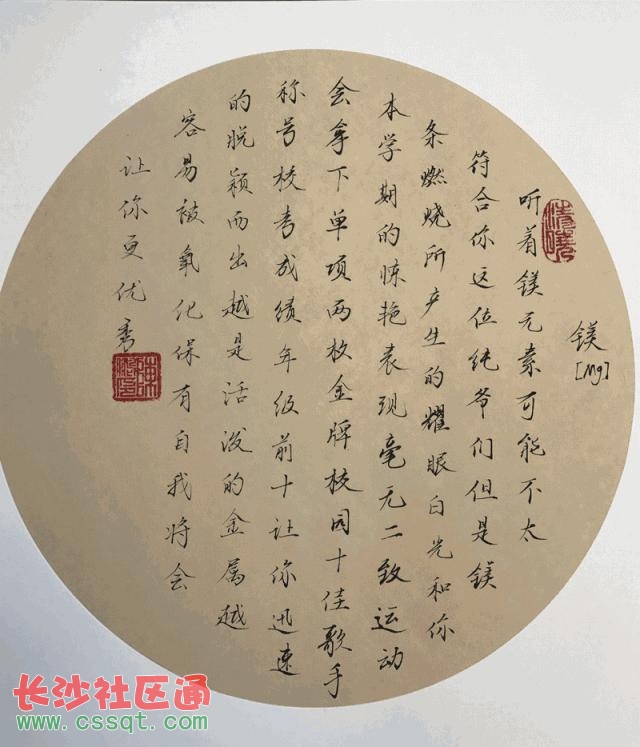 镁
[Mg]
听着镁元素可能不太
符合你这位纯爷们但是镁
条燃烧所产生的耀眼白光和你
本学期的惊艳表现毫无二致运动
会拿下单项两枚金牌校园十佳歌手
称号校考成绩年级前十让你迅速
的脱颖而出越是活泼的金属越
容易被氧化保有自我将会
让你更优秀
长沙社区通
www.cssqt.com